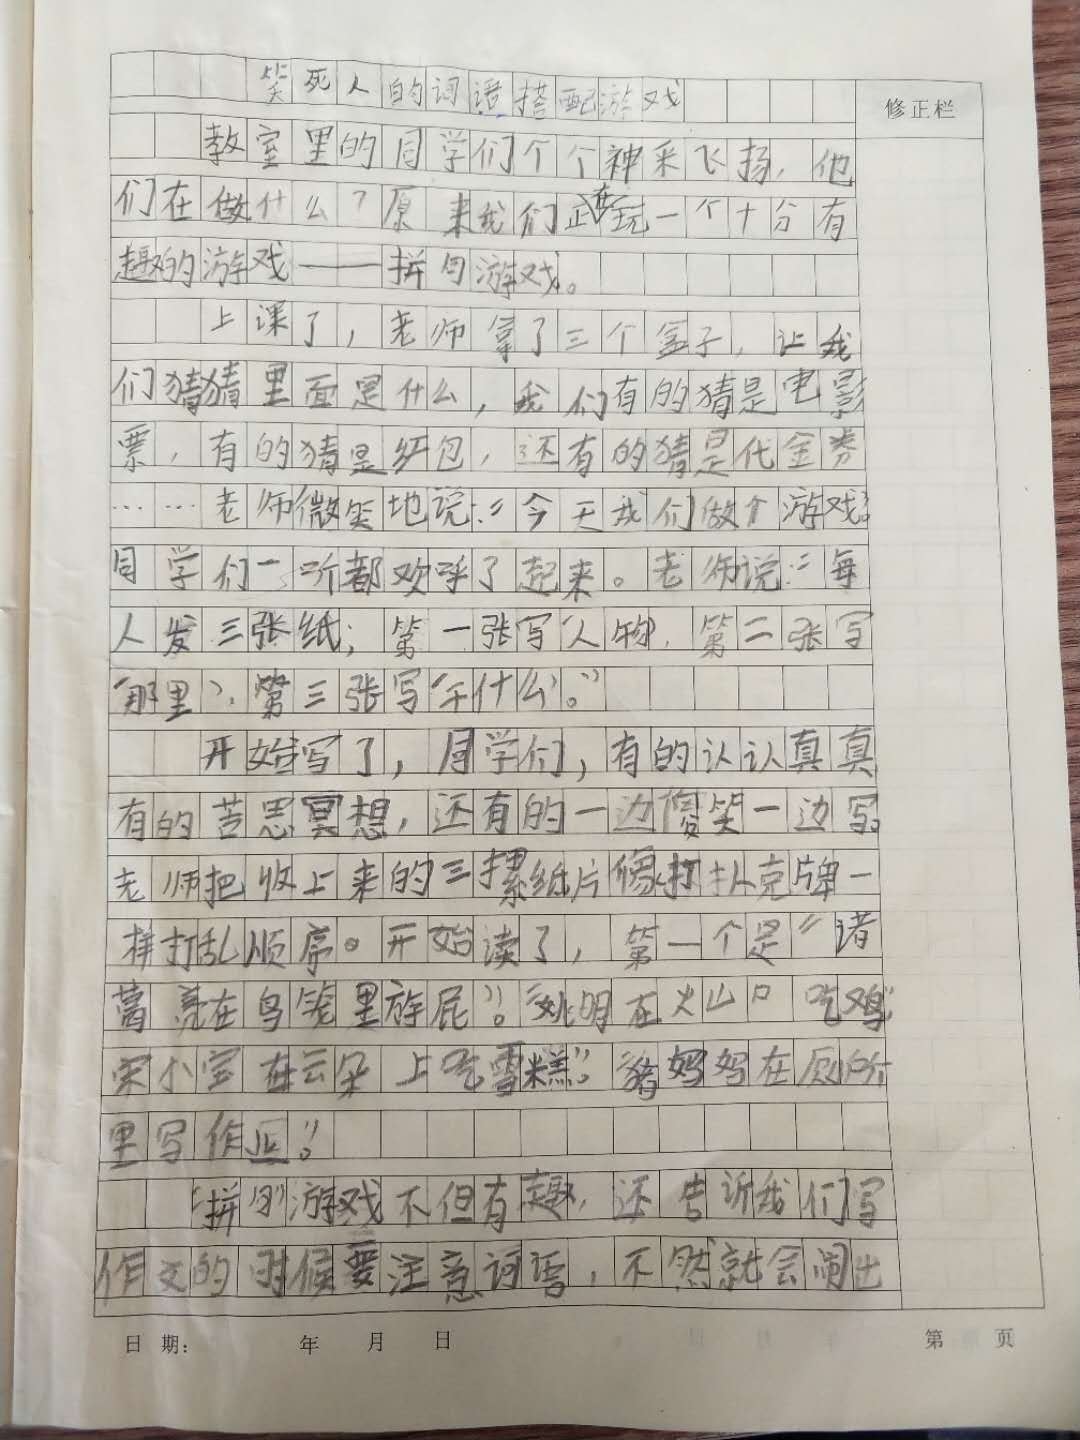 笑死人的词语搭配游戏
修正栏
教室里的同学们个个神采飞扬，他
们在做什么？原来我们正在玩一个十分有
趣的游戏——拼句游戏。
上课了，老师拿了三个盒子，让我
们猜猜里面是什么，我们有的猜是电影
票，有的猜是红包，还有的猜是代金券
……老师微笑地说：“今天我们做个游戏。”
同学们一听都欢呼了起来。老师说：“每
人发三张纸；第一张写‘人物’，第二张写
‘那里’，第三张写‘干什么’。”
开始写了，同学们，有的认认真真
有的苦思冥想，还有的一边傻笑一边写。
老师把收上来的三摞纸片像打扑克牌一
样打乱顺序。开始读了，第一个是“诸
葛亮在鸟笼里放屁”。“姚明在火山口吃鸡”
宋小宝在云朵上吃雪糕。”“猪妈妈在厕所
里写作业”。
“拼句”游戏不但有趣，还告诉我们写
作文的时候要注意词语，不然就会闹出
日期：　年　月　日　第　页